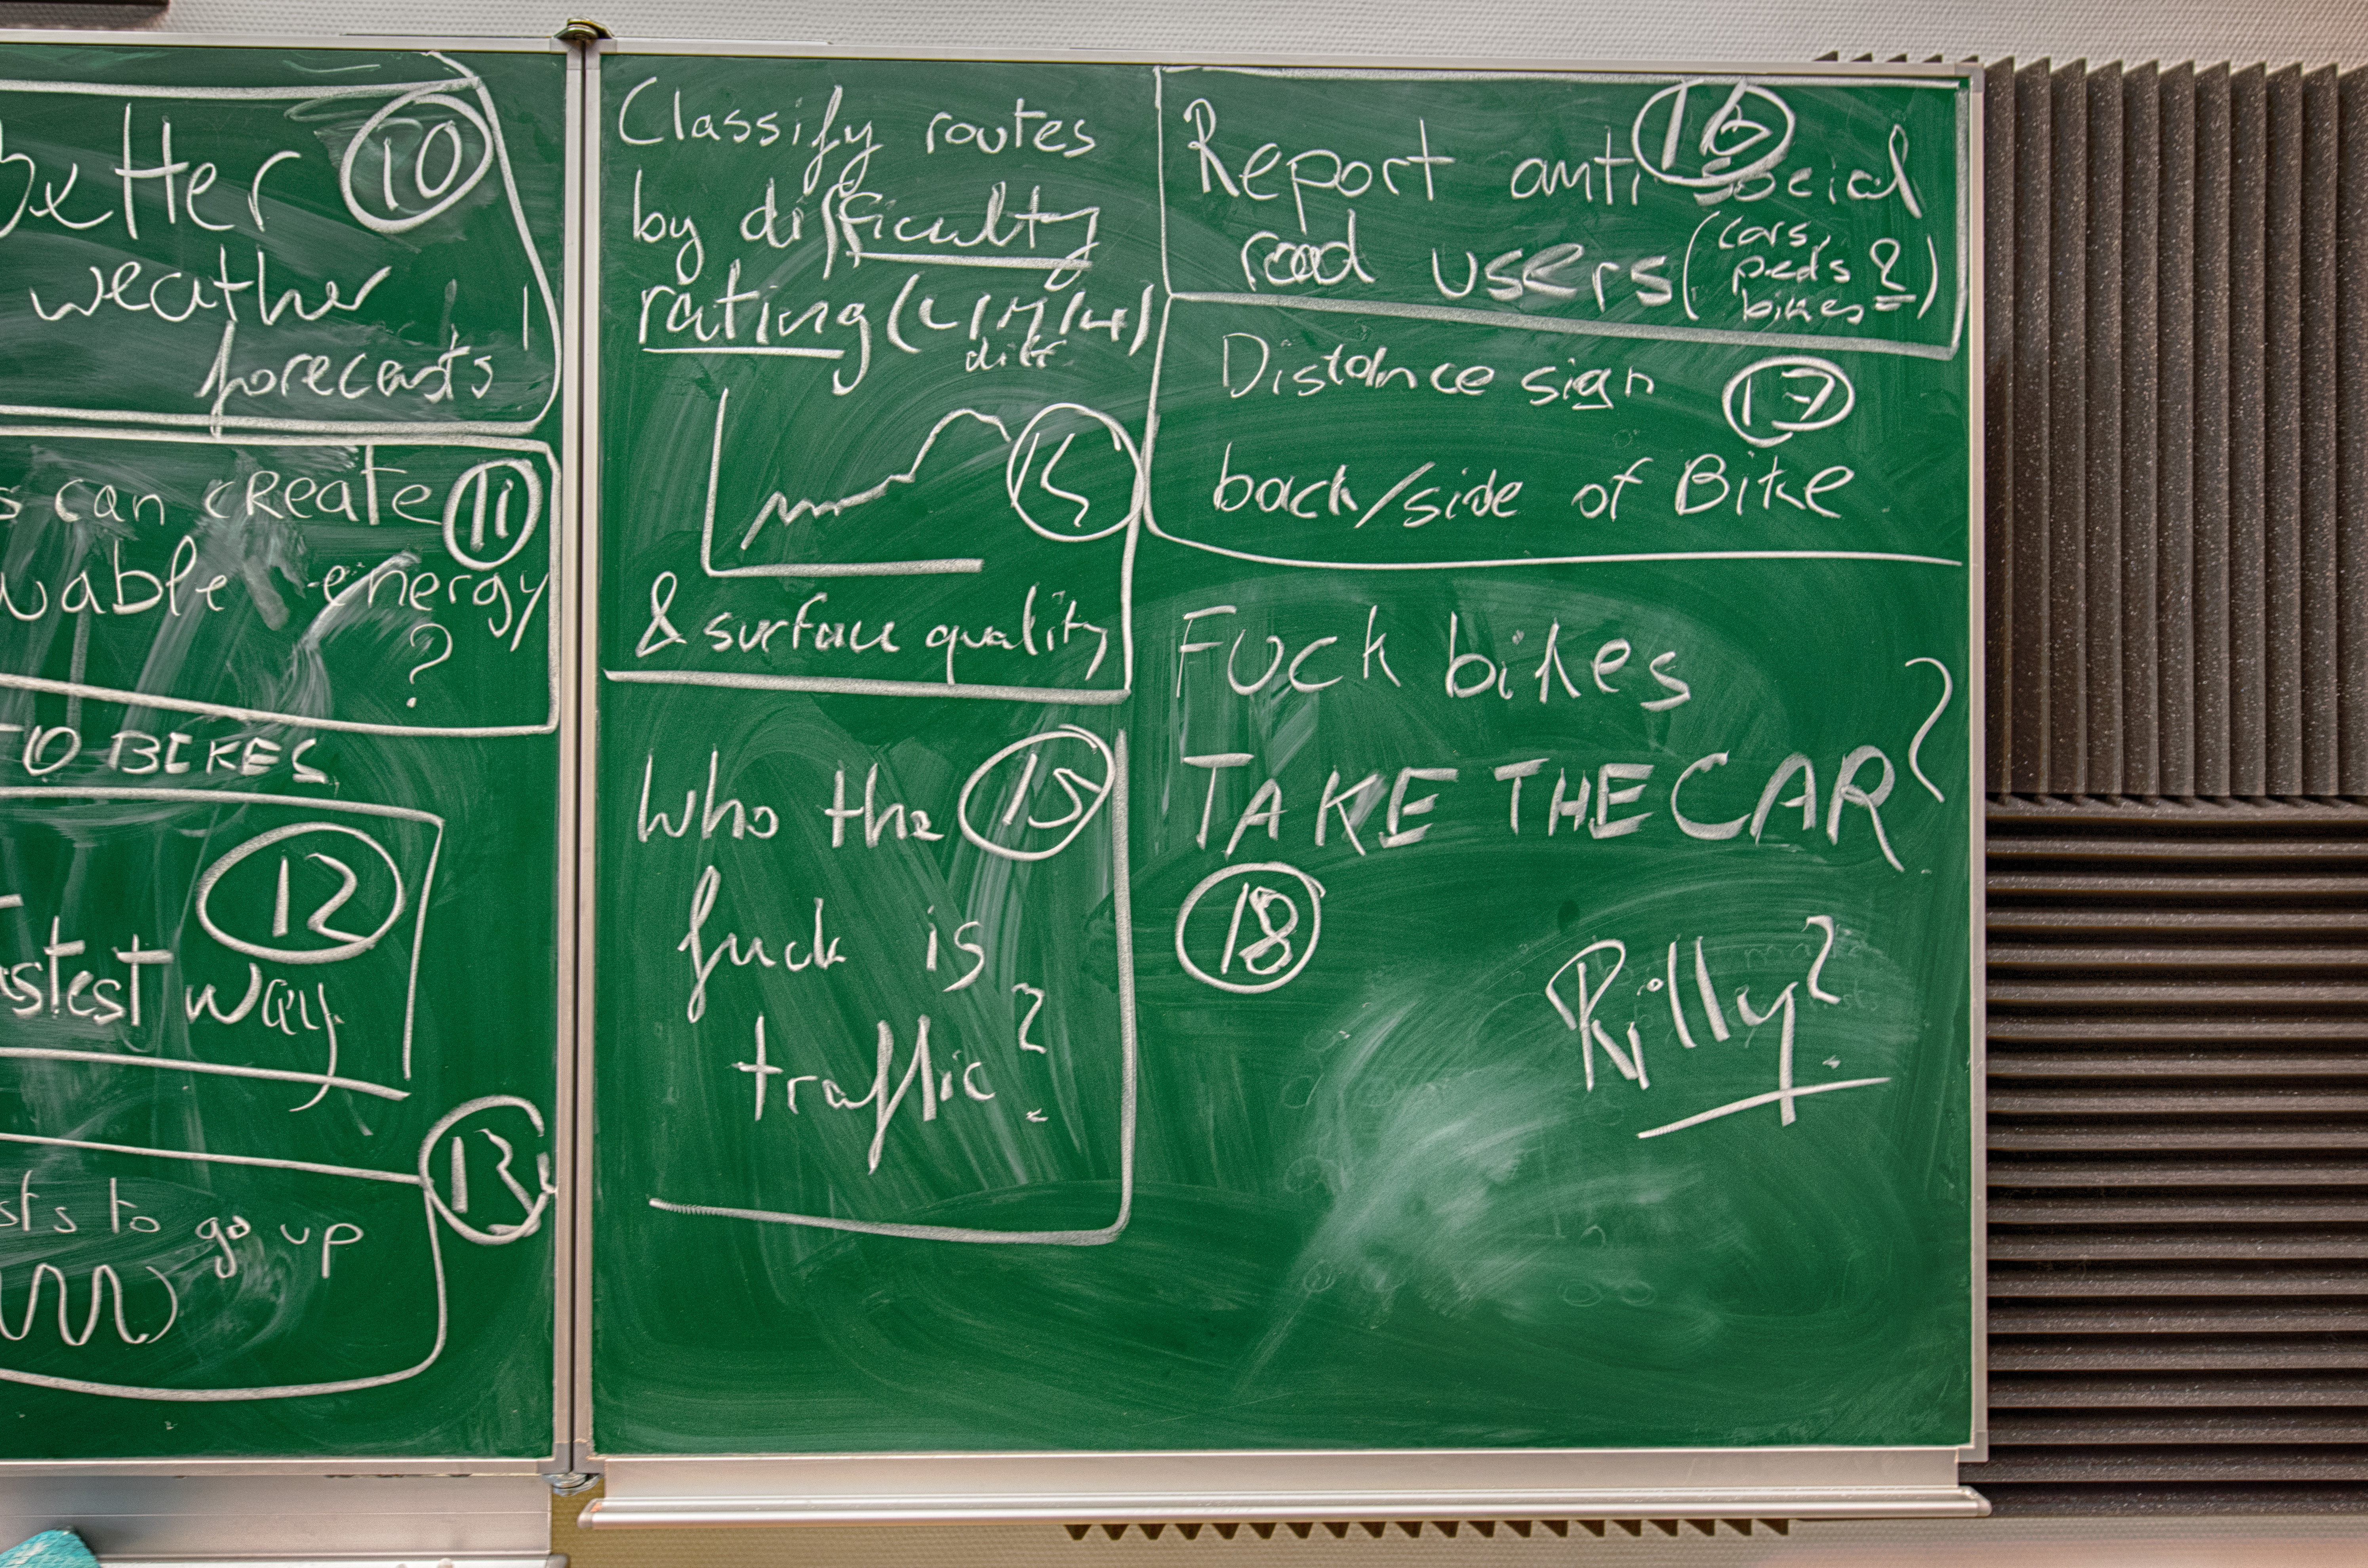 Better 10
weather
forecasts
s can create 11
wable energy
?
TO BIKES
12
astest way
13
sts to go up
Classify routes
by difficulty
rating (L/M/H)
diff.
14
& surface quality
Who the 15
fuck is
traffic?
16
Report anti social
road users (cars,
peds
bikes?)
Distance sign 17
back/side of Bike
Fuck bikes
TAKE THE CAR ?
18
Rilly?